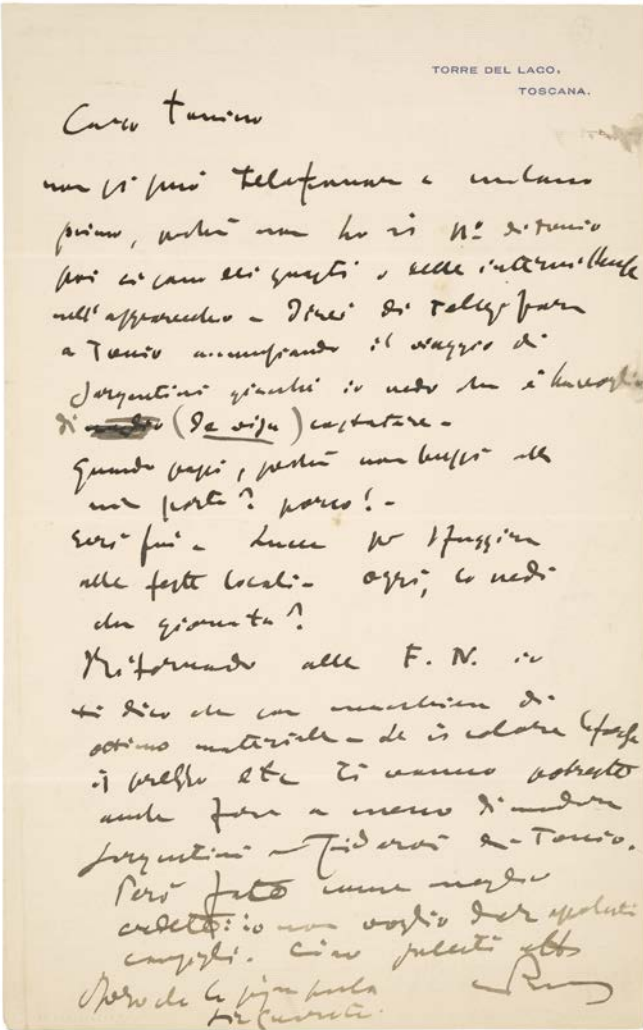 TORRE DEL LAGO,
TOSCANA.
Caro Tonino
non si può telefonare a milano
prima, perché non ho il nº di Tonio
poi ci sono dei guasti o delle
nell'apparecchio - Direi di
a Tonio annunziando il viaggio di
Sorgentini giacché io vedo che è
di (de visu) constatare -
Quando passi, perché non bussi alla
mia porta? porco! -
Ieri fui a Lucca per sfuggire
alle feste locali - oggi, lo vedi
che giornata?
Ritornando alla F. N. io
ti dico che son macchine di
ottimo materiale - se il colore la forza
il prezzo etc ti vanno potreste
anche fare a meno di mandare
Sorgentini - fidarsi Tonio.
Però fate come meglio
credete: io non voglio dar assoluti
consigli. Ciao saluti
Spero che la signora